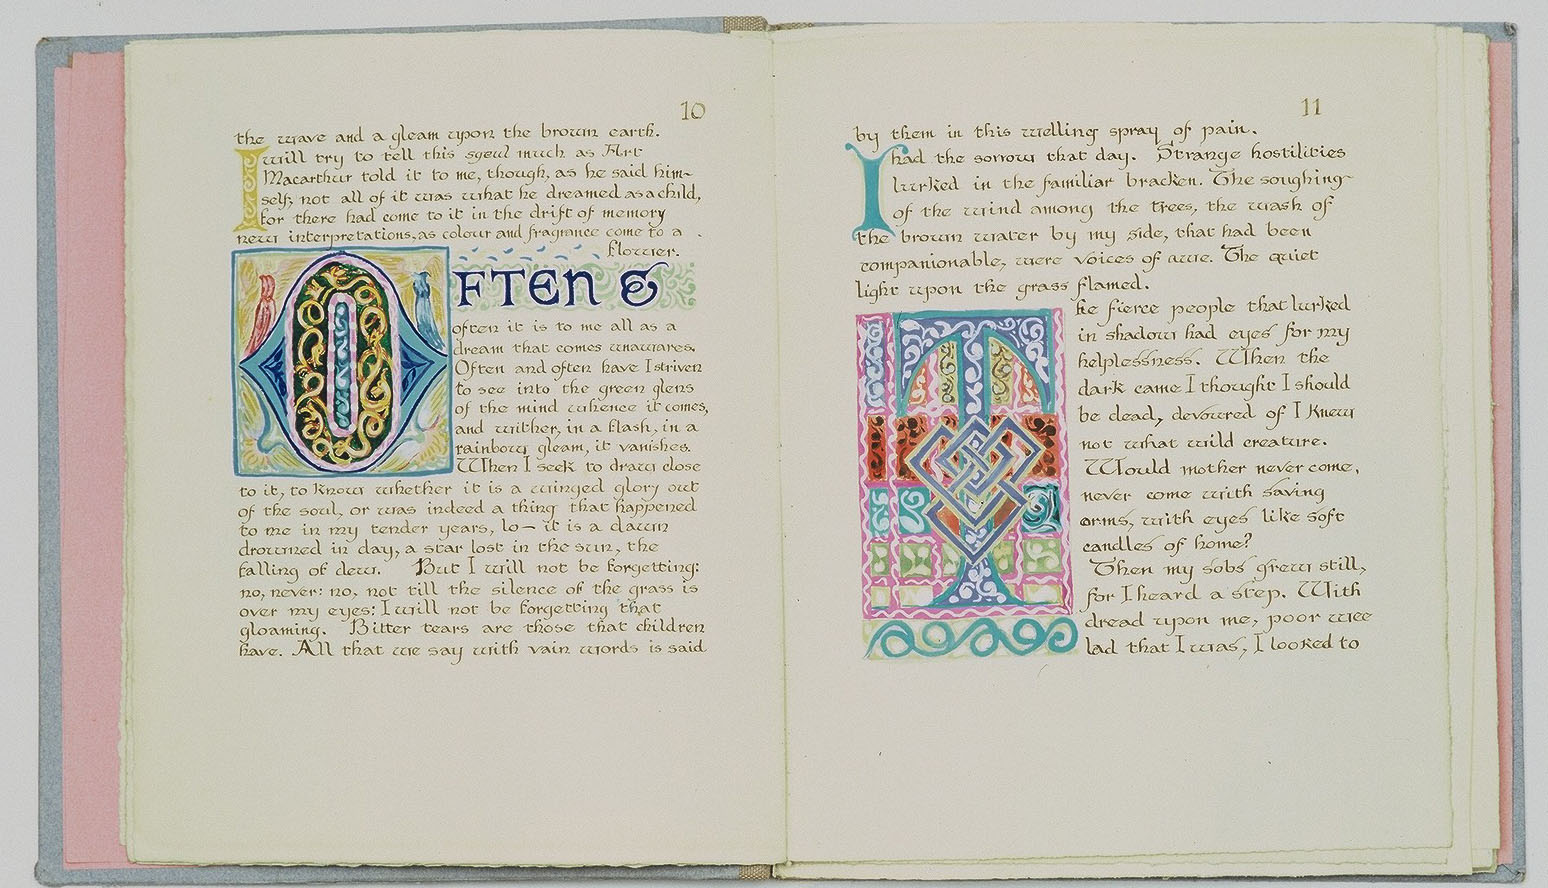 10
the wave and a gleam upon the brown earth.
I will try to tell this sgeul much as Art
Macarthur told it to me, though, as he said him-
self, not all of it was what he dreamed as a child,
for there had come to it in the drift of memory
new interpretations, as colour and fragrance come to a
flower.
OFTEN &
often it is to me all as a
dream that comes unawares.
Often and often have I striven
to see into the green glens
of the mind whence it comes,
and wither, in a flash, in a
rainbow gleam, it vanishes.
When I seek to draw close
to it, to know whether it is a winged glory out
of the soul, or was indeed a thing that happened
to me in my tender years, lo — it is a dawn
drowned in day, a star lost in the sun, the
falling of dew. But I will not be forgetting:
no, never: no, not till the silence of the grass is
over my eyes: I will not be forgetting that
gloaming. Bitter tears are those that children
have. All that we say with vain words is said
11
by them in this welling spray of pain.
I had the sorrow that day. Strange hostilities
lurked in the familiar bracken. The soughing
of the wind among the trees, the wash of
the brown water by my side, that had been
companionable, were voices of awe. The quiet
light upon the grass flamed.
The fierce people that lurked
in shadow had eyes for my
helplessness. When the
dark came I thought I should
be dead, devoured of I knew
not what wild creature.
Would mother never come,
never come with saving
arms, with eyes like soft
candles of home?
Then my sobs grew still,
for I heard a step. With
dread upon me, poor wee
lad that I was, I looked to